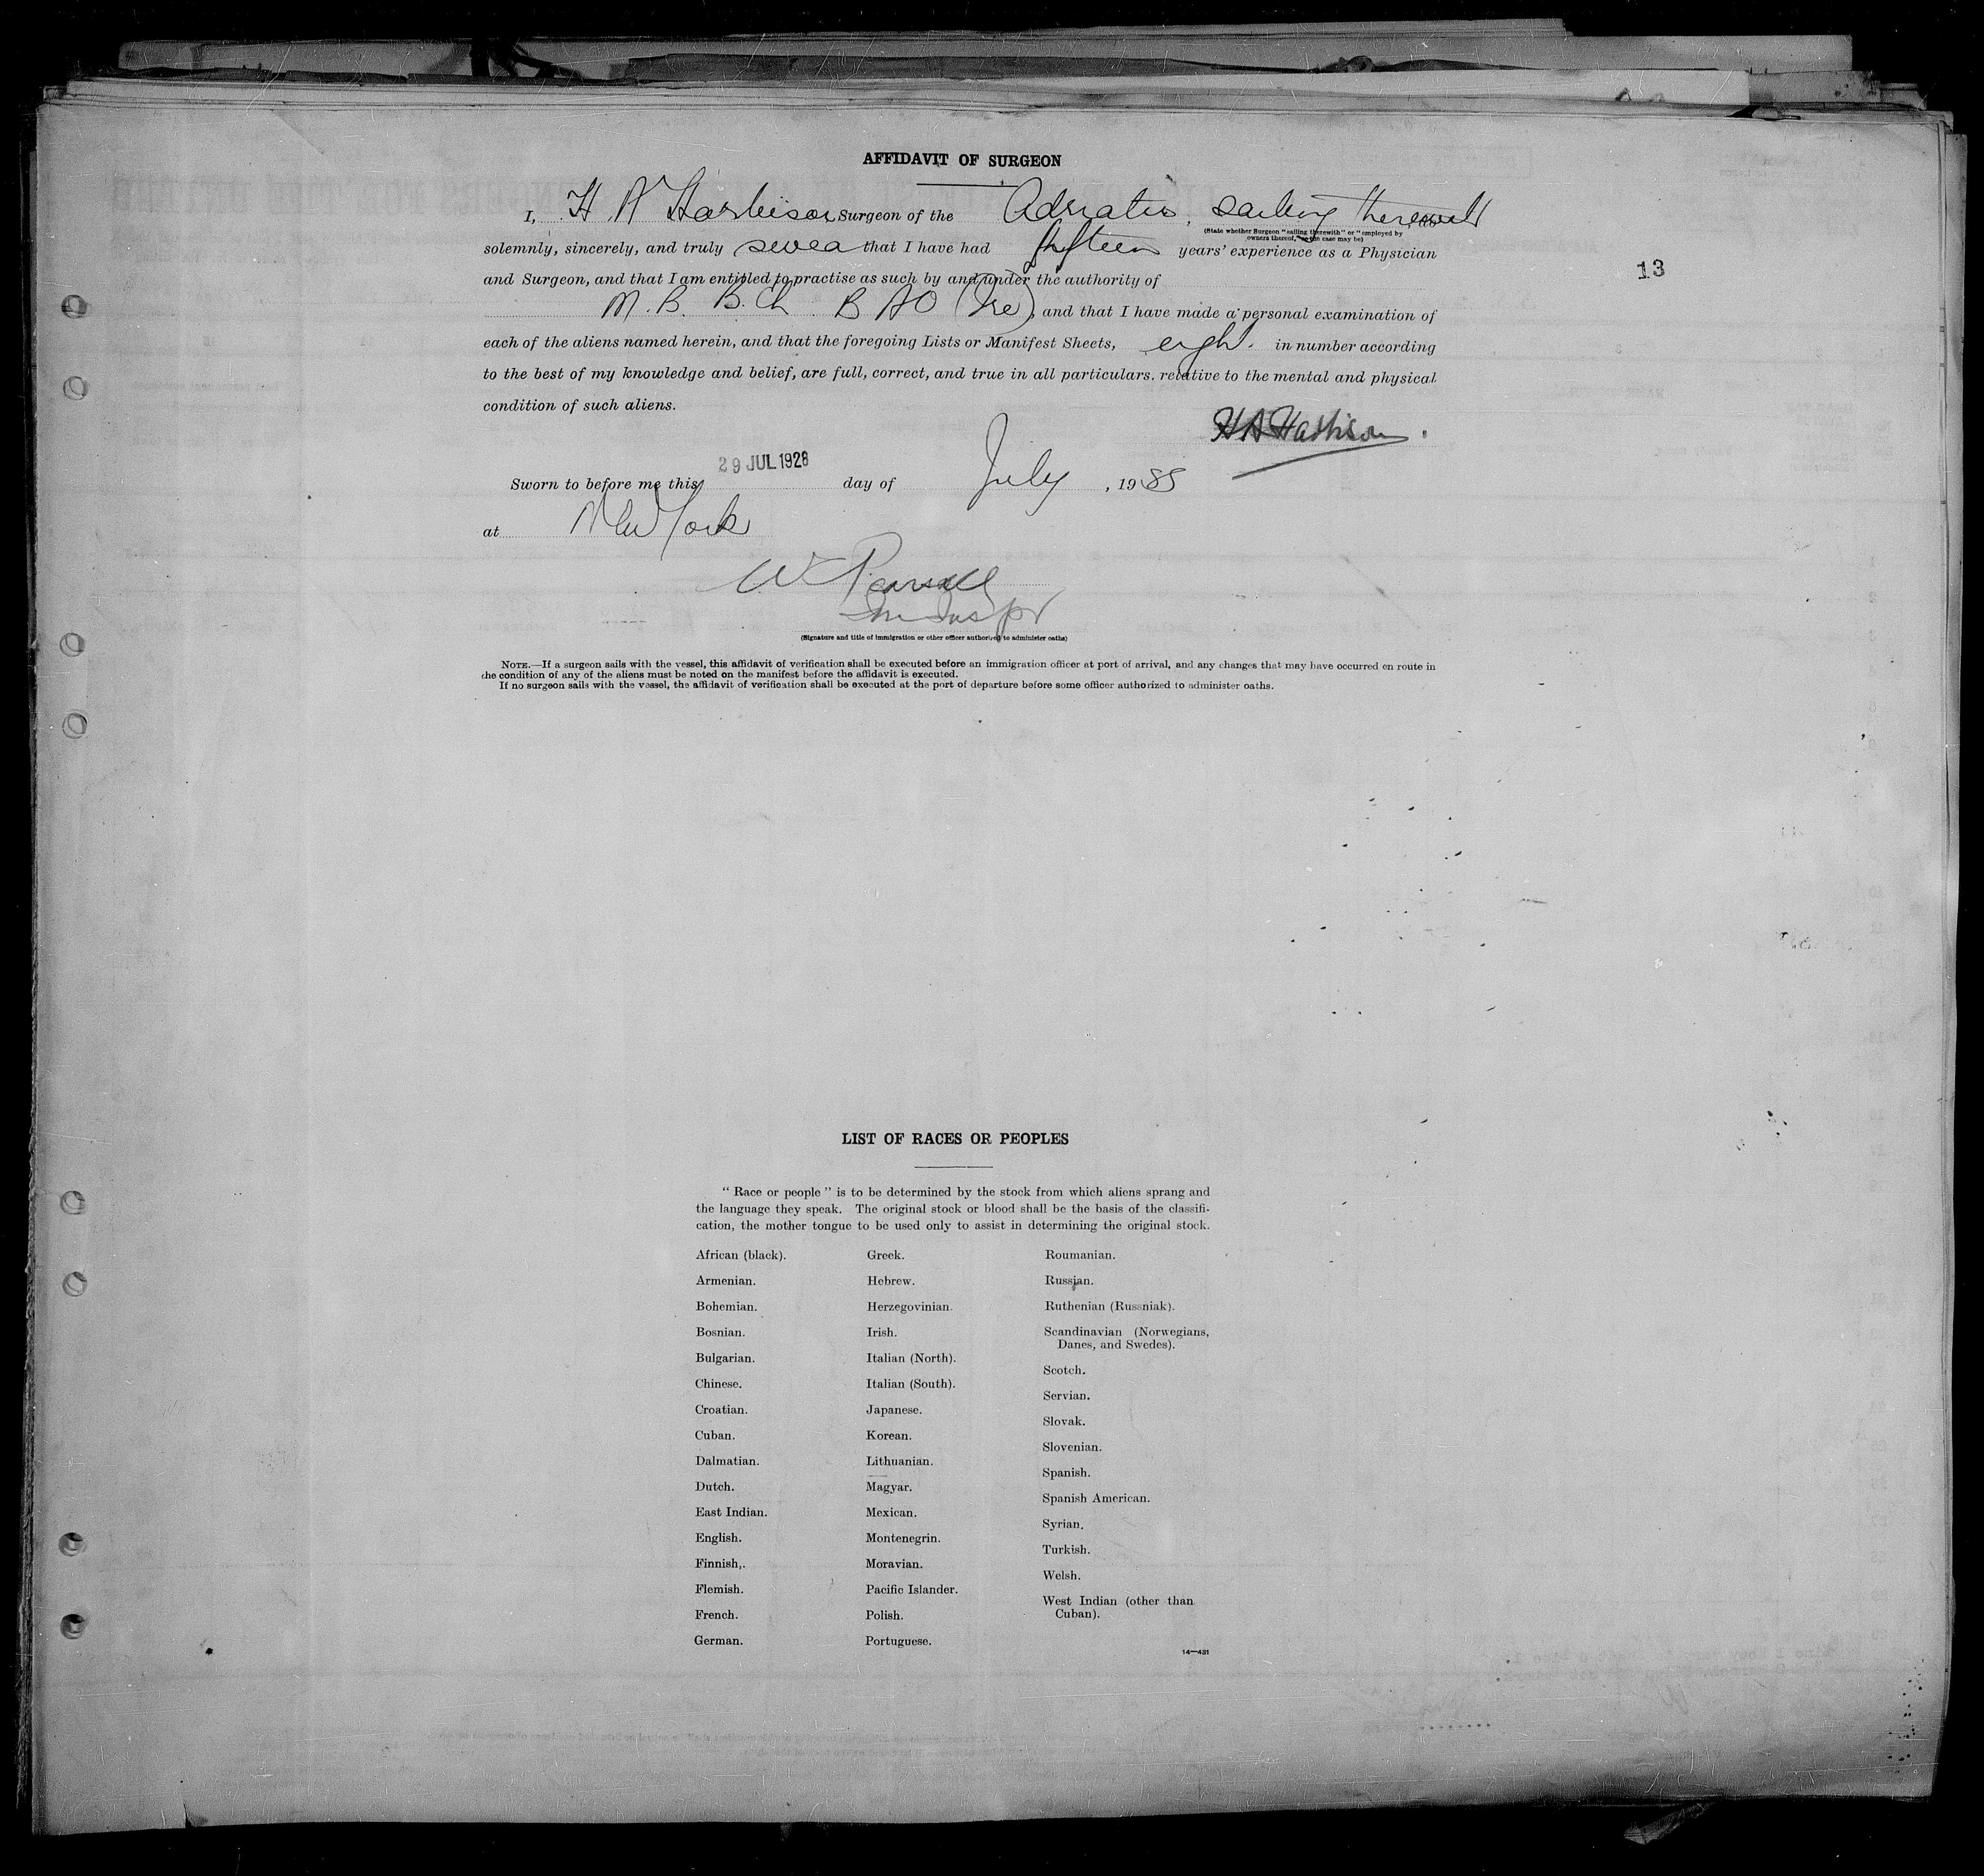 AFFIDAVIT OF SURGEON
I, H A Harbison Surgeon of the Adriatic, sailing therewith, do
(State whether Surgeon "sailing therewith" or "employed by
owners thereof," as the case may be)
solemnly, sincerely, and truly swear that I have had fifteen years' experience as a Physician
13
and Surgeon, and that I am entitled to practise as such by and under the authority of
M. B. B. Ch. B A O (Ire), and that I have made a personal examination of
each of the aliens named herein, and that the foregoing Lists or Manifest Sheets, eight in number according
to the best of my knowledge and belief, are full, correct, and true in all particulars. relative to the mental and physical
condition of such aliens.
H A Harbison.
Sworn to before me this 29 JUL 1928 day of July, 19
at New York
W Pearsall
Im Inspr
(Signature and title of immigration or other officer authorized to administer oaths)
NOTE.—If a surgeon sails with the vessel, this affidavit of verification shall be executed before an immigration officer at port of arrival, and any changes that may have occurred en route in
the condition of any of the aliens must be noted on the manifest before the affidavit is executed.
If no surgeon sails with the vessel, the affidavit of verification shall be executed at the port of departure before some officer authorized to administer oaths.
LIST OF RACES OR PEOPLES
"Race or people" is to be determined by the stock from which aliens sprang and
the language they speak. The original stock or blood shall be the basis of the classifi-
cation, the mother tongue to be used only to assist in determining the original stock.
African (black).
Armenian.
Bohemian.
Bosnian.
Bulgarian.
Chinese.
Croatian.
Cuban.
Dalmatian.
Dutch.
East Indian.
English.
Finnish.
Flemish.
French.
German.
Greek.
Hebrew.
Herzegovinian.
Irish.
Italian (North).
Italian (South).
Japanese.
Korean.
Lithuanian.
Magyar.
Mexican.
Montenegrin.
Moravian.
Pacific Islander.
Polish.
Portuguese.
Roumanian.
Russian.
Ruthenian (Russniak).
Scandinavian (Norwegians,
Danes, and Swedes).
Scotch.
Servian.
Slovak.
Slovenian.
Spanish.
Spanish American.
Syrian.
Turkish.
Welsh.
West Indian (other than
Cuban).
14—431